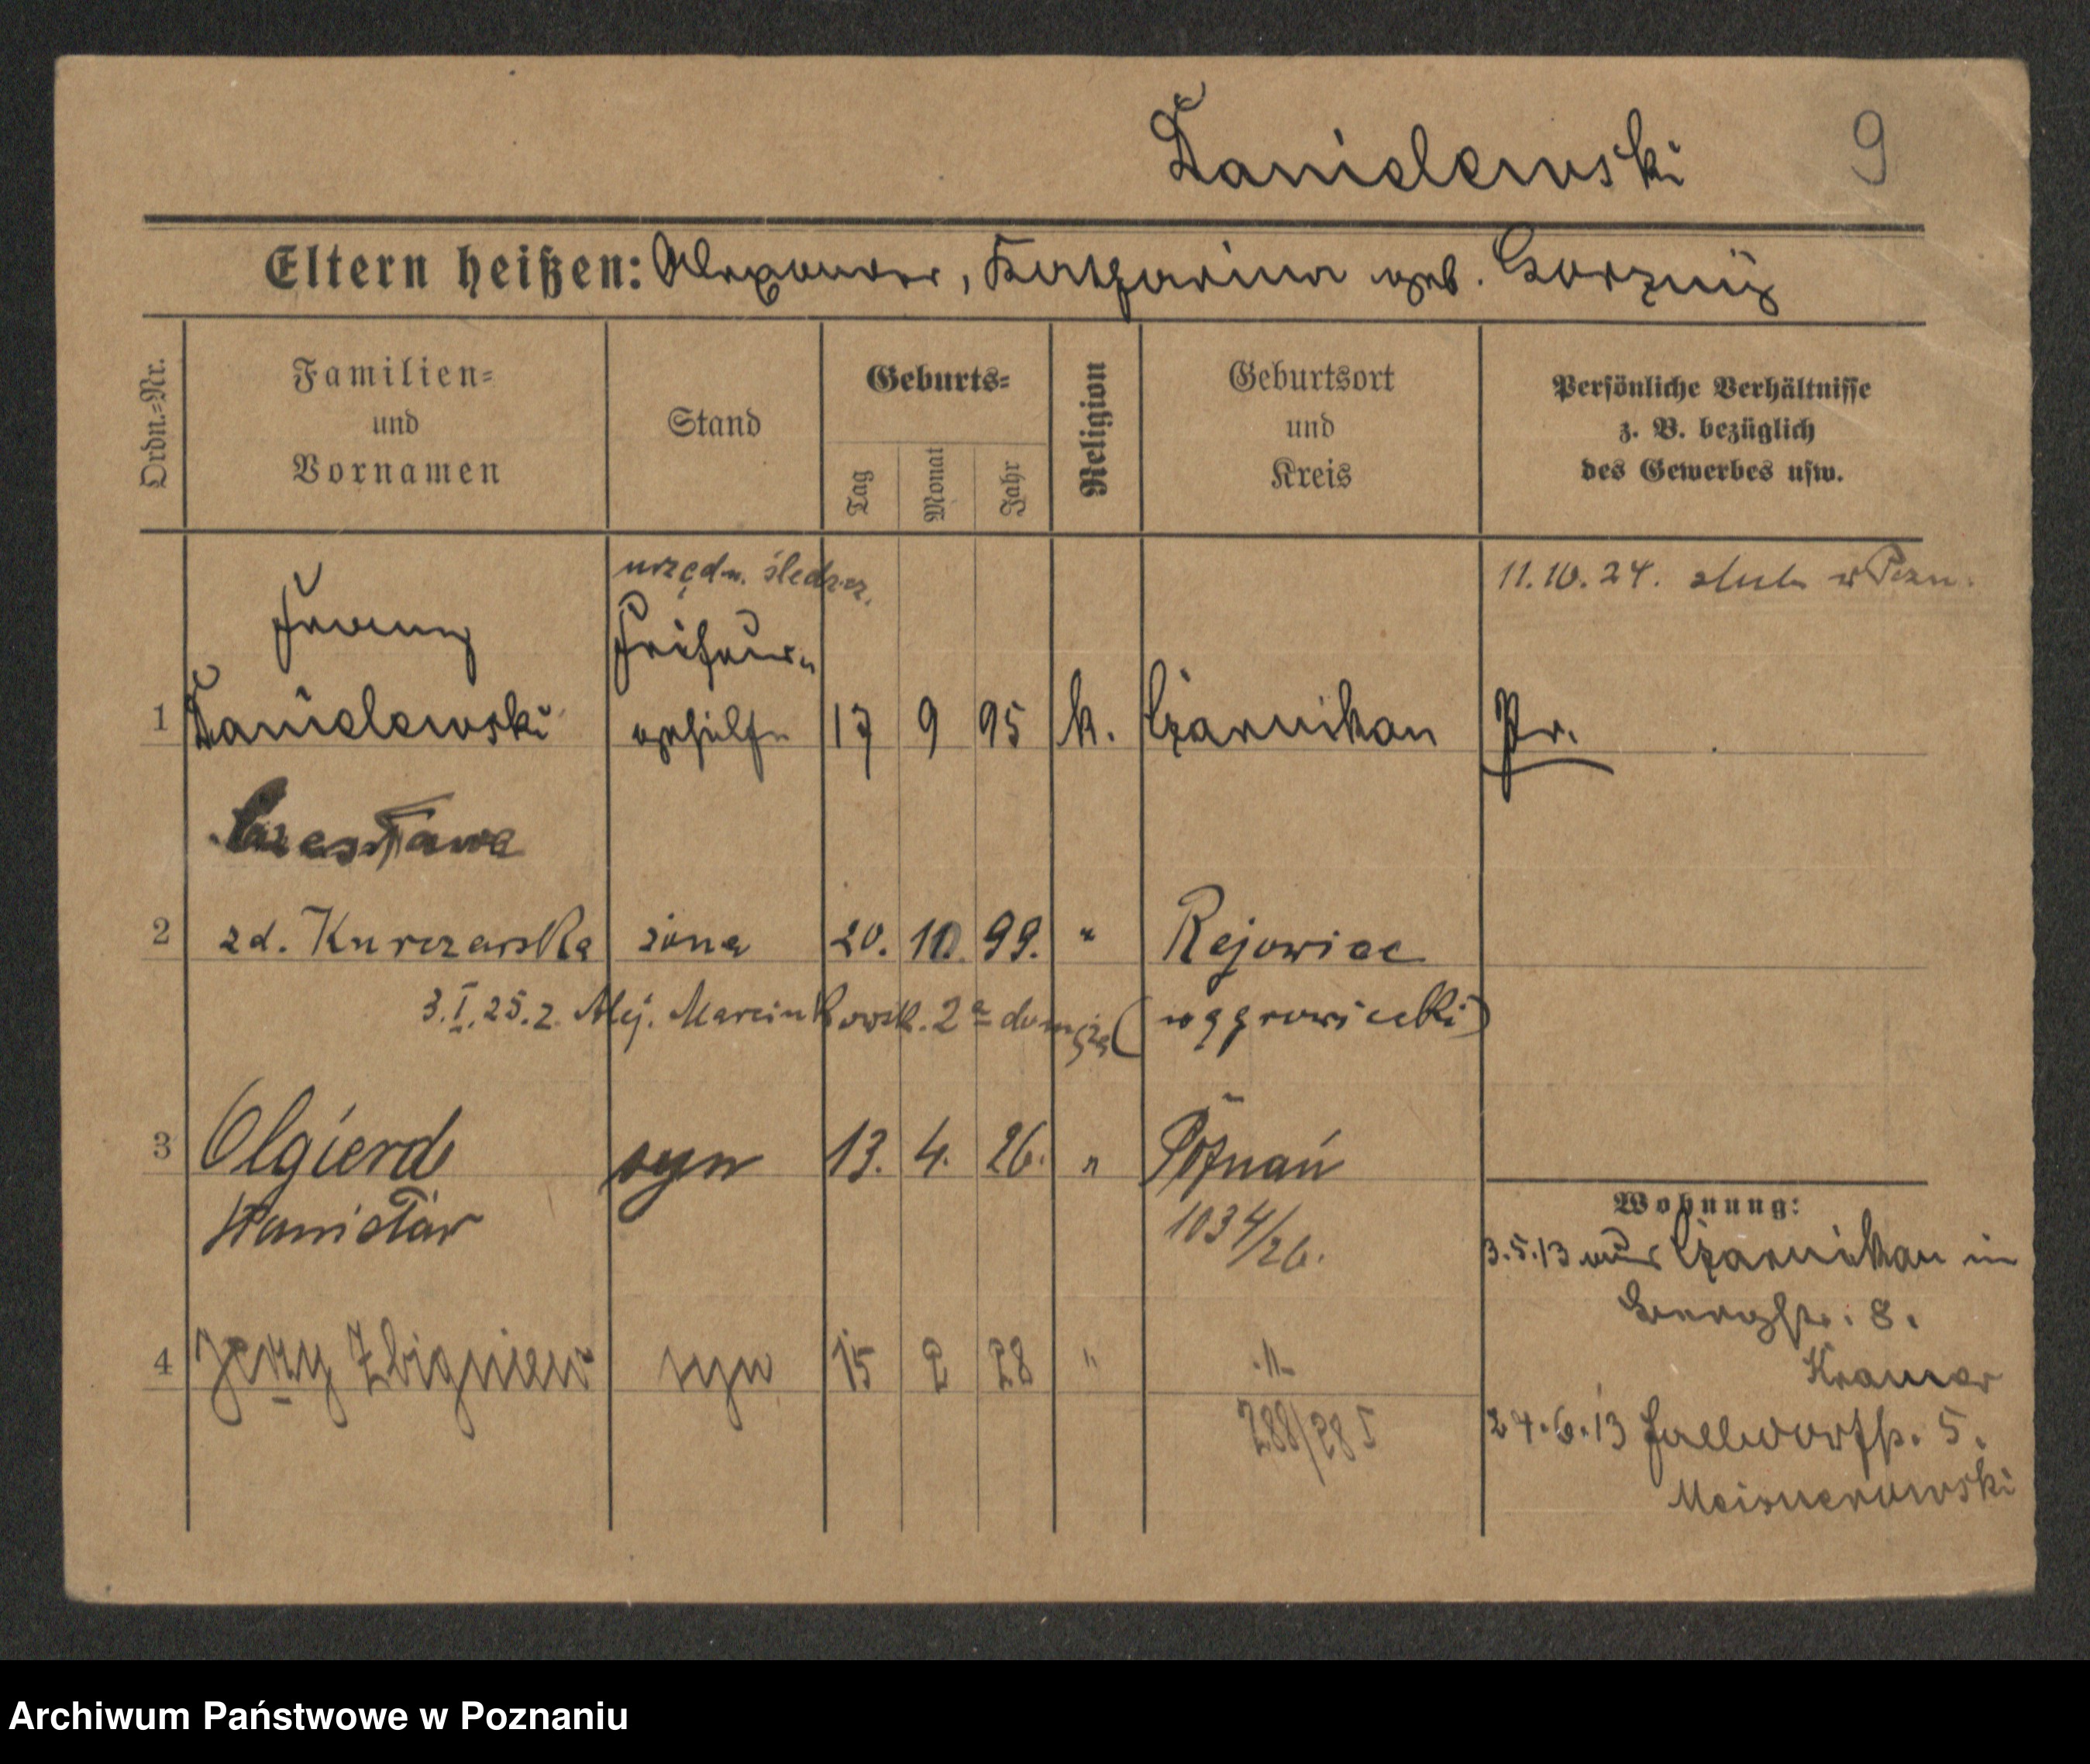 Danielewski 9
Eltern heißen: Alexander, Katharina geb.
Ordn.-Nr.
Familien-
und
Vornamen
Stand
Geburts-
Tag
Monat
Jahr
Religion
Geburtsort
und
Kreis
Persönliche Verhältnisse
z. B. bezüglich
des Gewerbes usw.
urzędn. śledcz.
11.10.24. ślub w Pozn.
Franz
Friseur-
1 Danielewski gehilfe 17 9 95 k. Czarnikau Pr.
Czesława
2 zd. Kurczarska żona 20. 10. 99. " Rejowiec
3.I.25. z Alej. Marcinkowsk. 2a do męża (wągrowiecki)
3 Olgierd syn 13. 4. 26. " Poznań
Stanisław 1034/26.
Wohnung:
3.5.13 aus Czarnikau in
8.
Kramer
4 Jerzy Zbigniew syn 15 2 28 " -"-
288/28 I
24.6.13 5.
Meisnerowski
Archiwum Państwowe w Poznaniu